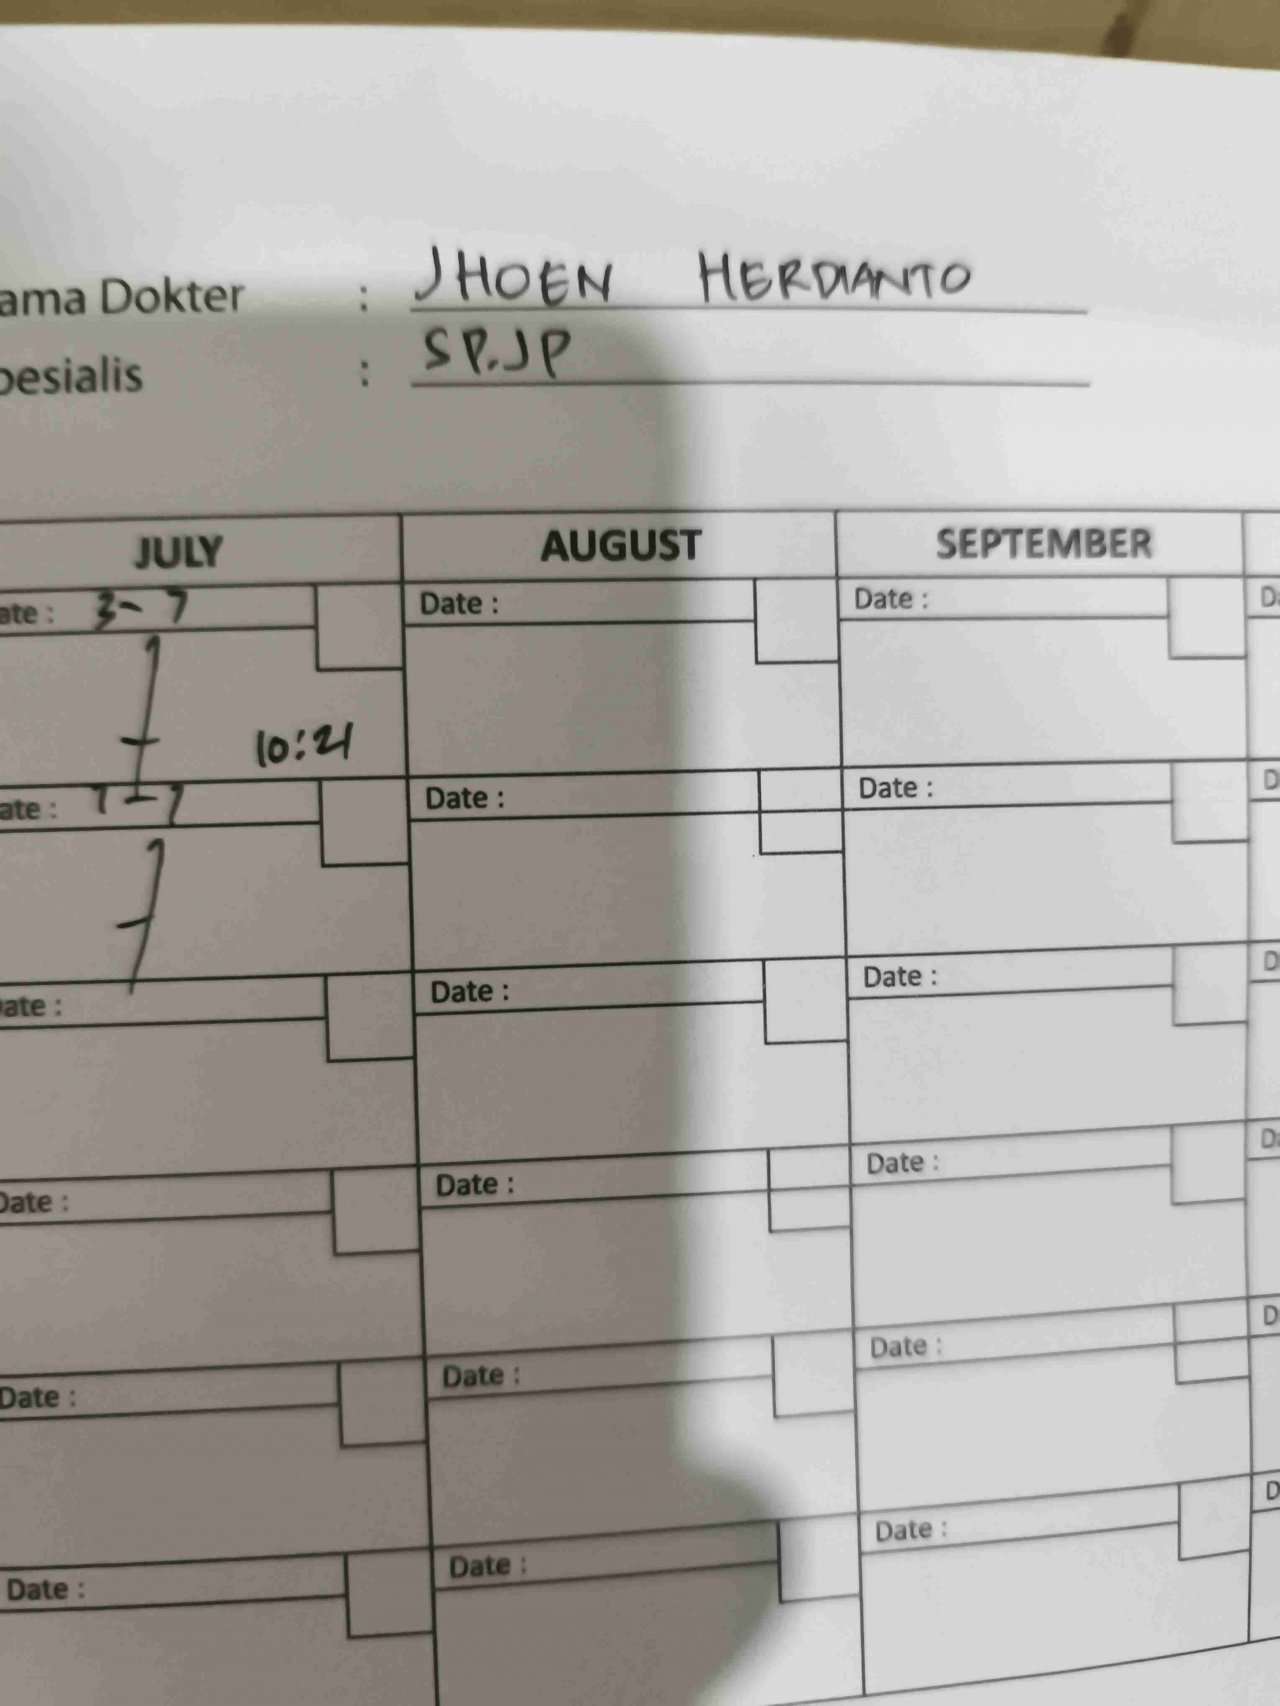 ama Dokter : JHOEN HERDIANTO
pesialis : SP.JP
JULY AUGUST SEPTEMBER
ate : 3-7 Date : Date : Da
10:21
ate : 7-7 Date : Date : D
ate : Date : Date : D
Date : Date : Date : Da
Date : Date : Date : D
Date : Date : Date : D